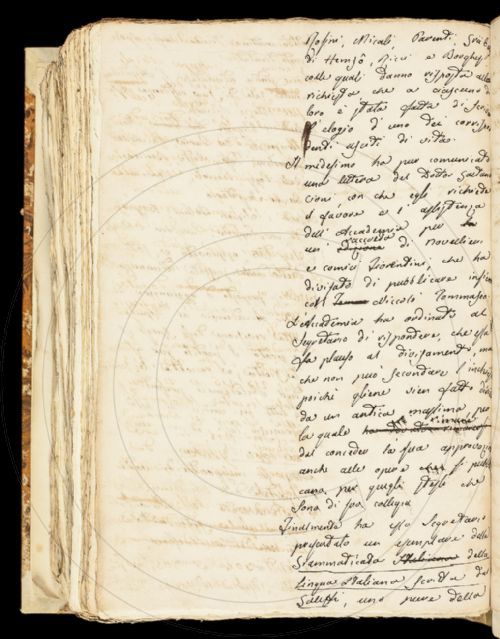 Rosini, Micali, Parenti, Grib
di Hemsö, Ricci e Borghesi
colle quali danno risposta alla
richiesta che a ciascuno di
loro è stata fatta di scri
l'elogio d'uno dei corrispon
denti usciti di vita.
Il medesimo ha pur comunicato
una lettera del Dottor Gaetano
Cioni, con che egli richiede
il favore e l'assistenza
dell'Accademia per
un' raccolta di Novellieri
e comici Fiorentini, che ha
divisato di pubblicare insieme
col Niccolò Tommaseo.
L'Accademia ha ordinato al
Segretario di rispondere, che essa
fa plauso al divisamento, ma
che non può secondare l'inchiesta
poiché gliene vien fatto divieto
da un antica massima, per
la quale
del concedere la sua approvazione
anche alle opere che si pubbli
cano per quegli stessi che
sono di suo collegio.
Finalmente ha esso Segretario
presentato un esemplare della
Grammatica Italiana della
Lingua Italiana scritta da
una pure della